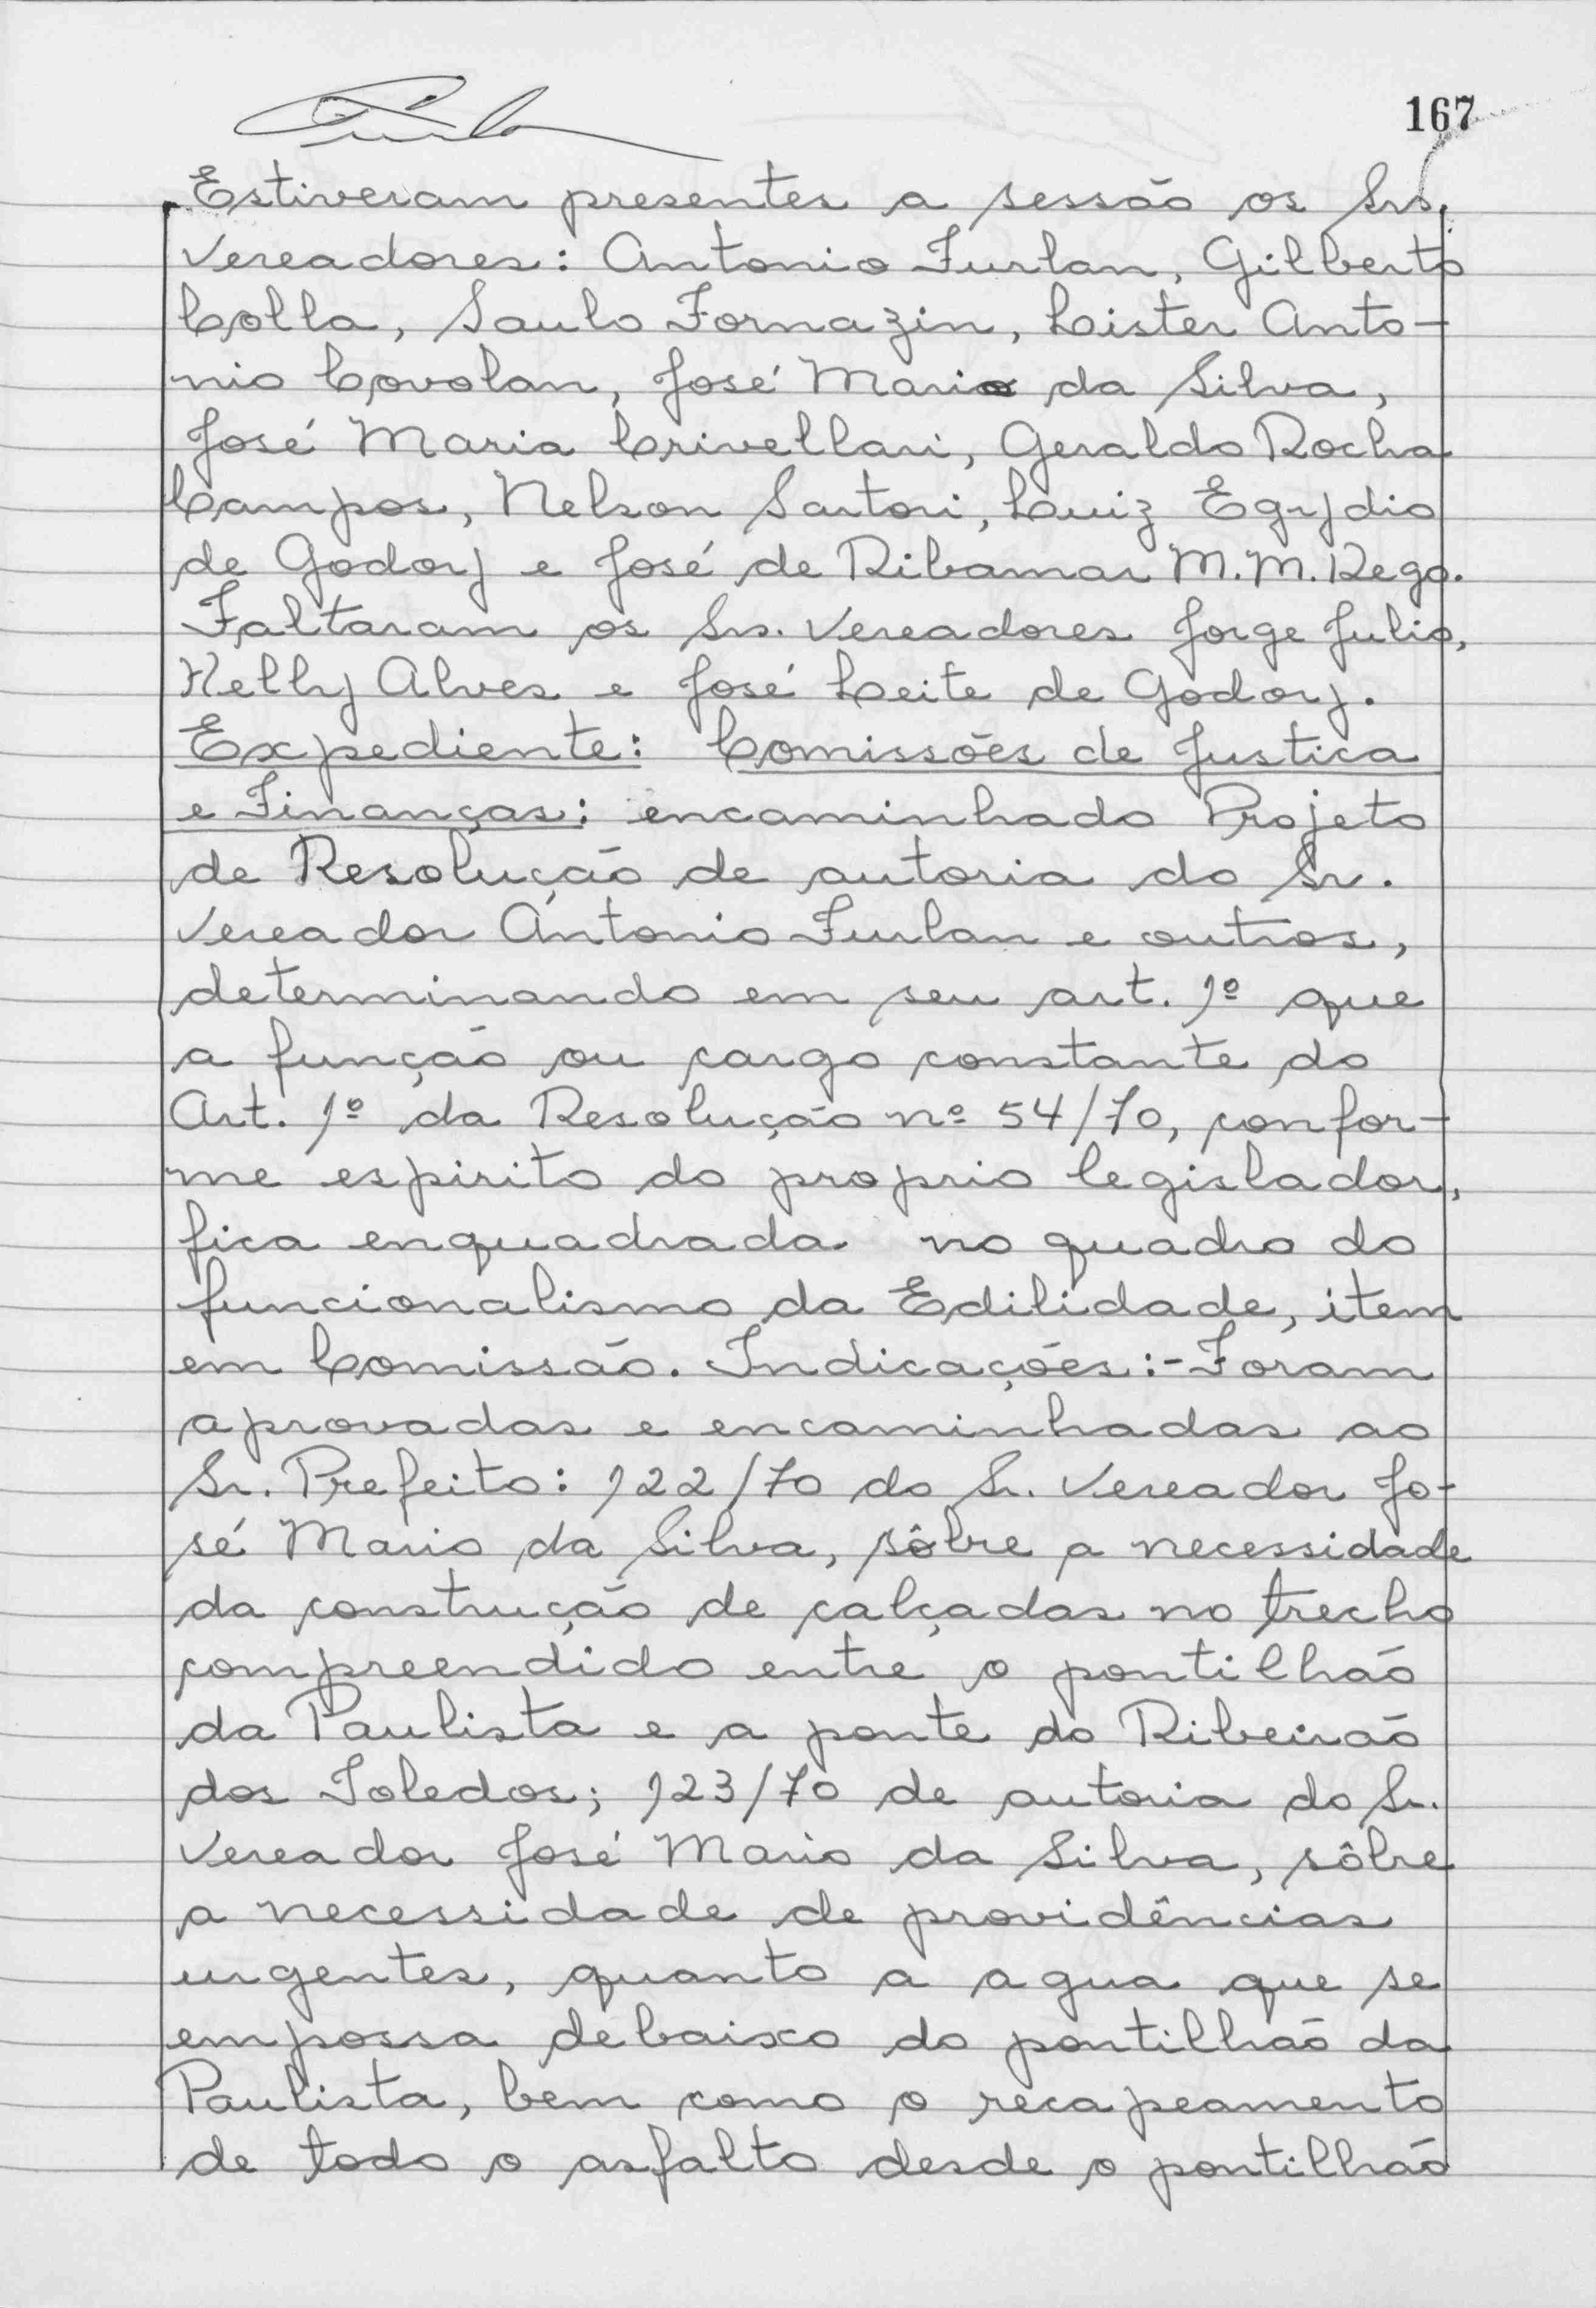 167
Estiveram presentes a sessão os Srs.
Vereadores: Antonio Furlan, Gilberto
Colla, Saulo Fornazin, Lister Anto-
nio Covolan, José Mario da Silva,
José Maria Crivellari, Geraldo Rocha
Campos, Nelson Sartori, Luiz Egydio
de Godoy e José de Ribamar M.M. Rego.
Faltaram os Srs. Vereadores Jorge Julio,
Kelly Alves e José Leite de Godoy.
Expediente: Comissões de Justica
e Finanças: encaminhado Projeto
de Resolução de autoria do Sr.
Vereador Antonio Furlan e outros,
determinando em seu art. 1º que
a função ou cargo constante do
Art. 1º da Resolução nº 54/70, confor-
me espirito do proprio legislador,
fica enquadrada no quadro do
funcionalismo da Edilidade, item
em Comissão. Indicações:- Foram
aprovadas e encaminhadas ao
Sr. Prefeito: 122/70 do Sr. Vereador Jo-
sé Mario da Silva, sôbre a necessidade
da construção de calçadas no trecho
compreendido entre o pontilhão
da Paulista e a ponte do Ribeirão
dos Toledos; 123/70 de autoria do Sr.
Vereador José Mario da Silva, sôbre
a necessidade de providências
urgentes, quanto a agua que se
empossa debaixo do pontilhão da
Paulista, bem como o recapeamento
de todo o asfalto desde o pontilhão